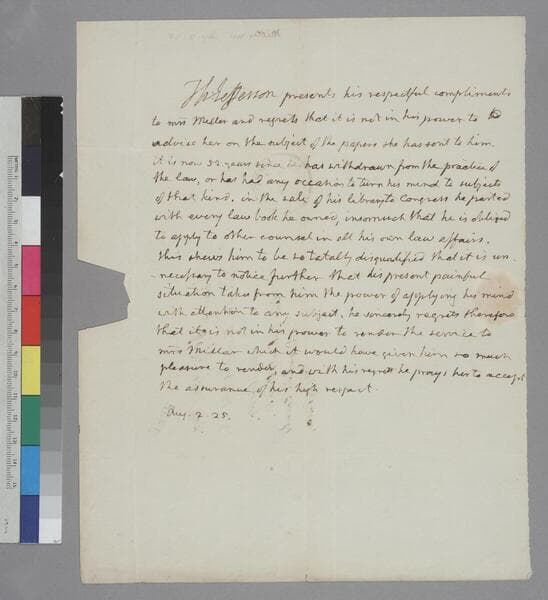 Th: Jefferson presents his respectful compliments
to mrs Miller and regrets that it is not in his power to
advise her on the subject of the papers she has sent to him.
it is now 52. years since he has withdrawn from the practice of
the law, or has had any occasion to turn his mind to subjects
of that kind. in the sale of his library to Congress he parted
with every law book he owned, insomuch that he is obliged
to apply to other counsel in all his own law affairs.
this shews him to be so totally disqualified that it is un-
-necessary to notice further that his present painful
situation takes from him the power of applying his mind
with attention to any subject. he sincerely regrets therefore
that it is not in his power to render the service to
mrs Miller which it would have given him so much
pleasure to render, and with his regret he prays her to accept
the assurance of his high respect.
Aug. 2. 25.